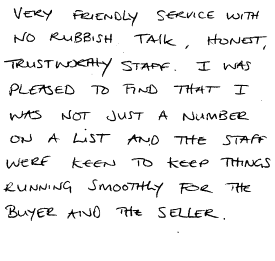 VERY FRIENDLY SERVICE WITH
NO RUBBISH TALK, HONEST,
TRUSTWORTHY STAFF. I WAS
PLEASED TO FIND THAT I
WAS NOT JUST A NUMBER
ON A LIST AND THE STAFF
WERE KEEN TO KEEP THINGS
RUNNING SMOOTHLY FOR THE
BUYER AND THE SELLER.